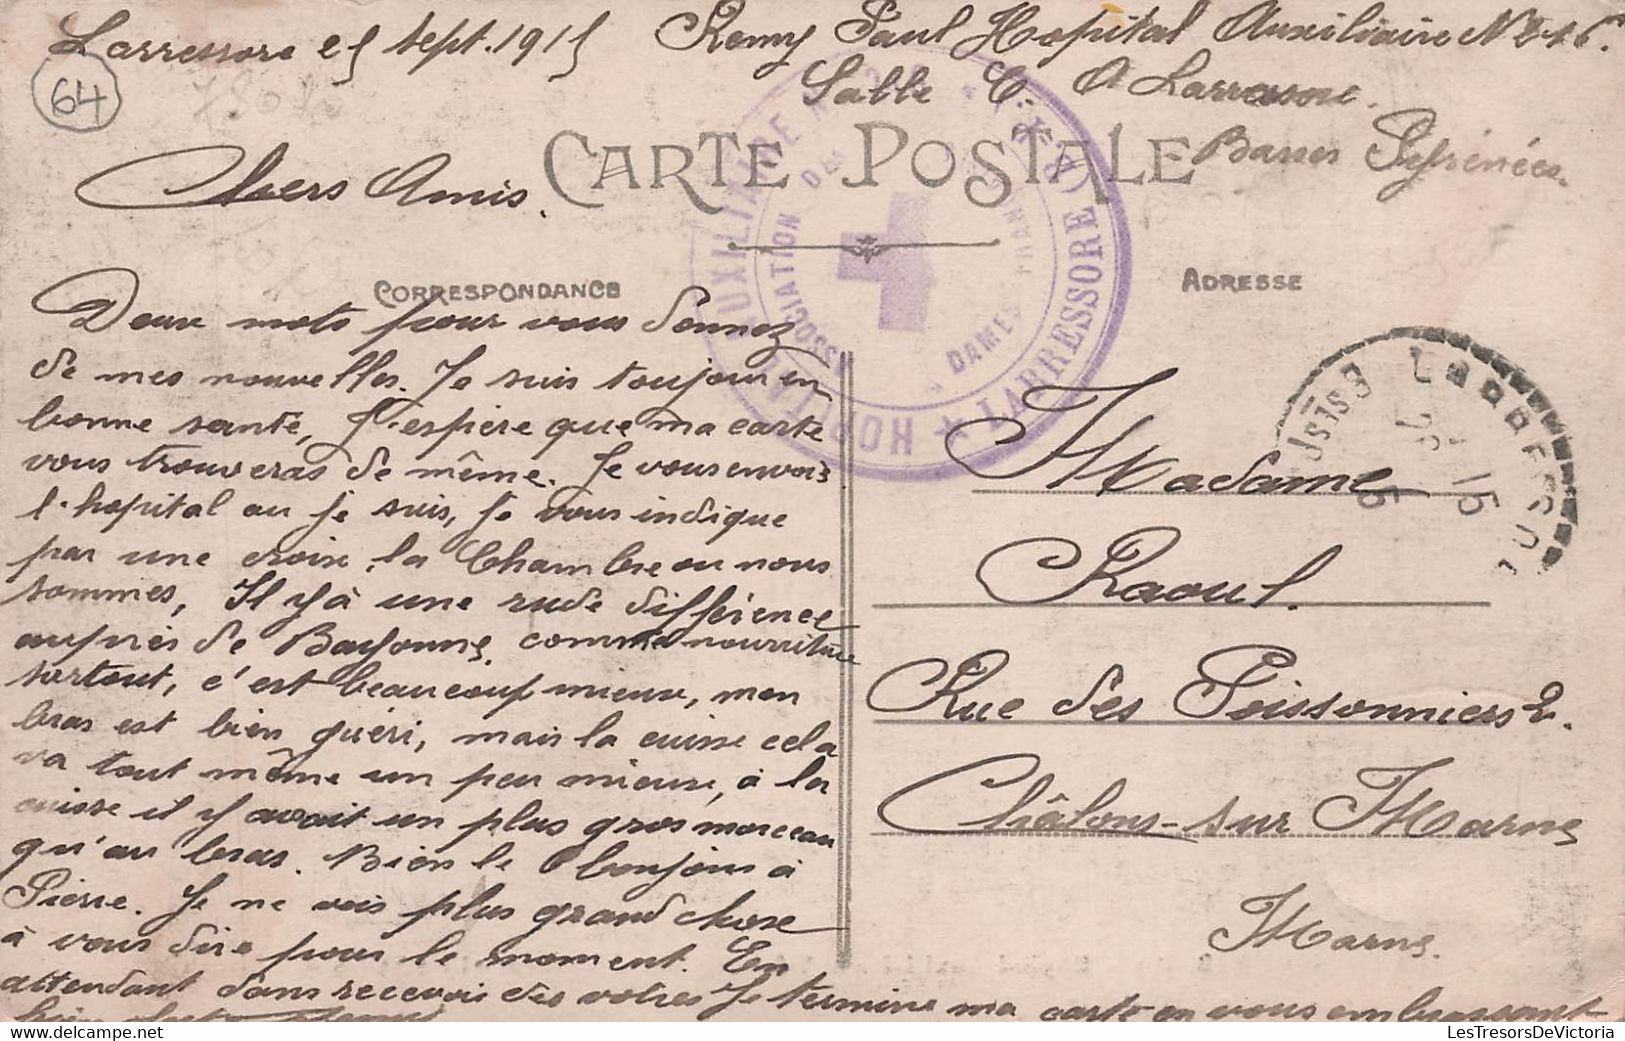 Larressore 25 sept. 1915
Remy Paul Hopital Auxiliaire N°
Salle C. A Larressore.
Basses Pyrénées.
64
CARTE POSTALE
Chers Amis.
CORRESPONDANCE
ADRESSE
HOPITAL AUXILIAIRE
LARRESSORE
ASSOCIATION DES DAMES
LARRESSORE
Deux mots pour vous donnez
de mes nouvelles. Je suis toujour en
bonne santé, J'espère que ma carte
vous trouveras de même. Je vous envois
l'hopital ou je suis, je vous indique
par une croix, la Chambre ou nous
sommes, Il y à une rude difference
auprès de Bayonne, comme nourriture
surtout, c'est beaucoup mieux, mon
bras est bien guéri, mais la cuisse cela
va tout même un peu mieux, à la
cuisse il y avait un plus gros morceau
qu'au bras. Bien le bonjour à
Pierre. Je ne vois plus grand chose
à vous dire pour le moment. En
attendant dans recevois des votres Je termine ma carte en vous embrassant
bien
Madame
Raoul.
Rue des Poissonniers 2.
Châlons-sur Marne
Marne.
LesTresorsDeVictoria